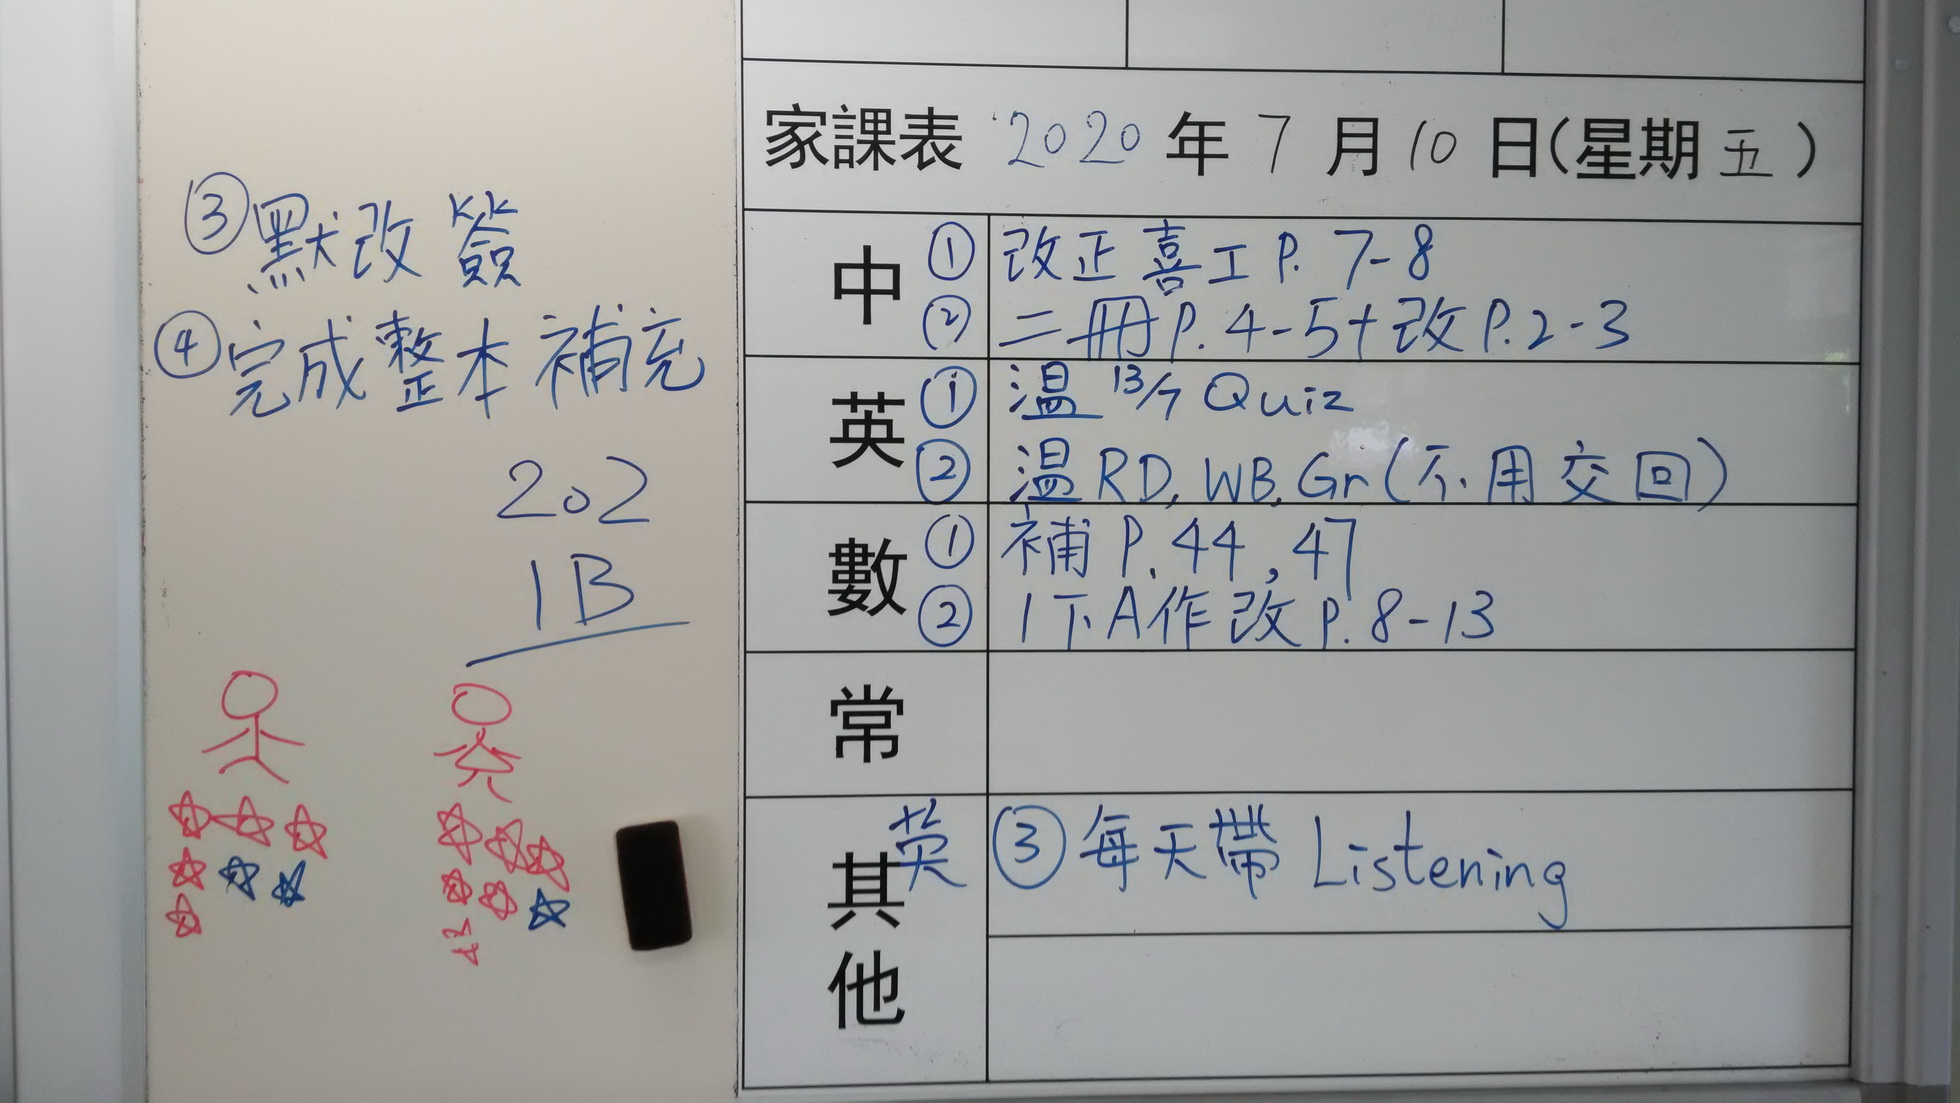 ③默改簽
④完成整本補充
202
1B
家課表 2020年7月10日(星期五)
中 ① 改正喜工P. 7-8
② 二冊P.4-5+改P.2-3
英 ① 溫 13/7 Quiz
② 溫RD, WB, Gr(不用交回)
數 ① 補P.44, 47
② 1下A作改P.8-13
常
其他 英 ③每天帶 Listening